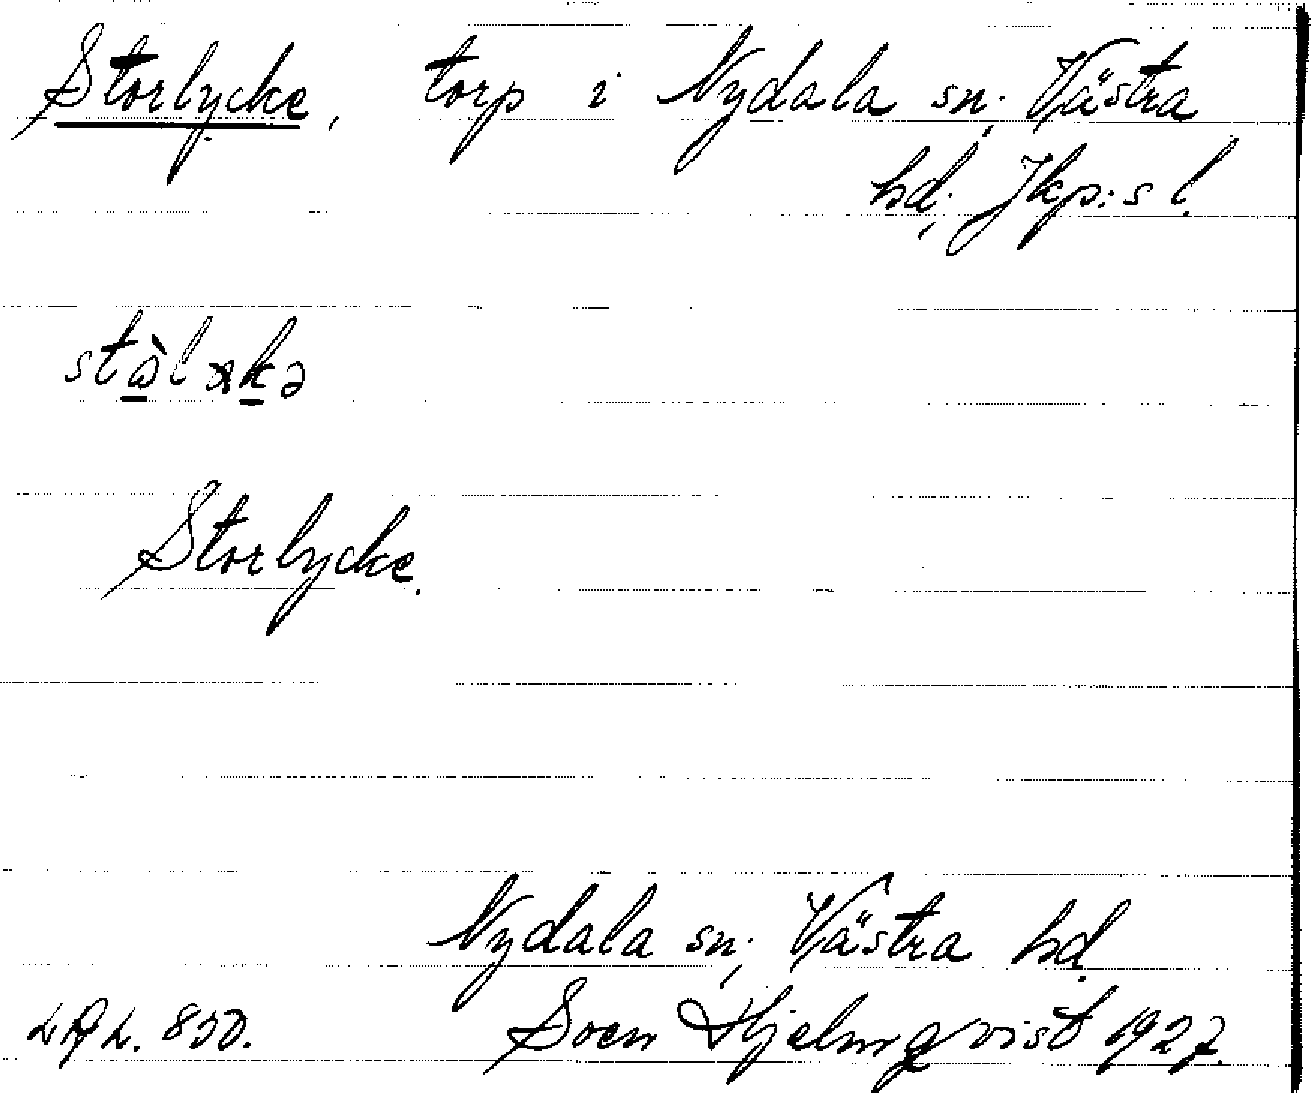 Storlycke, torp i Nydala sn; Västra
hd; Jkp:s l.
Storlycke.
Nydala sn; Västra hd.
Sven Hjelmqvist 1927.